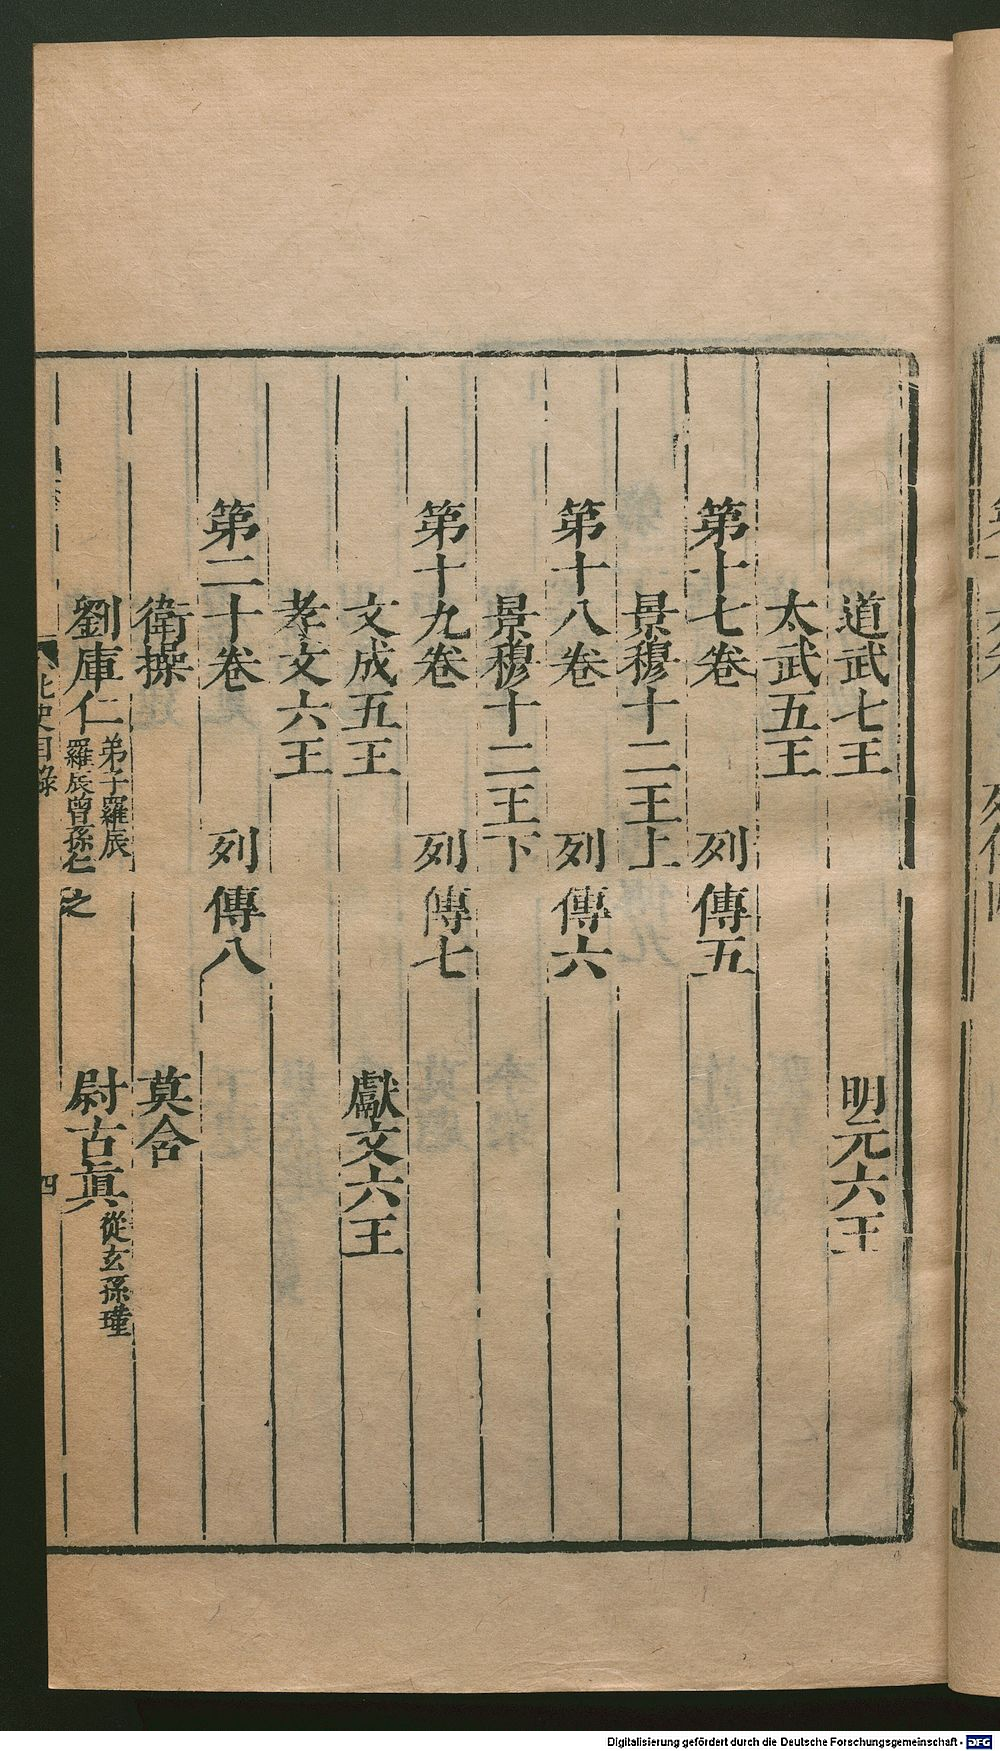 道武七王 明元六王
太武五王
第十七卷 列傳五
景穆十二王上
第十八卷 列傳六
景穆十二王下
第十九卷 列傳七
文成五王 獻文六王
孝文六王
第二十卷 列傳八
衛操 莫含
劉庫仁 弟子羅辰 羅辰曾孫仁之 尉古眞 從玄孫瑾
北史目錄 四
Digitalisierung gefördert durch die Deutsche Forschungsgemeinschaft - DFG